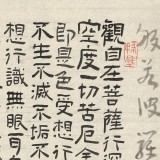 般若波羅
觀自在菩薩行深
空度一切苦厄舍
即是色受想行
不生不滅不垢不
想行識無眼